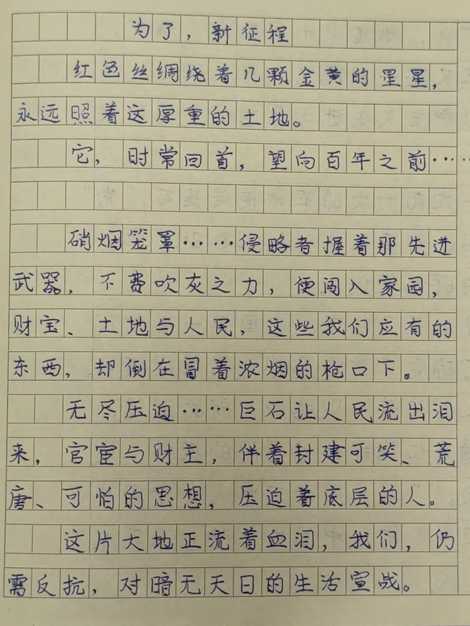 为了，新征程
红色丝绸绕着几颗金黄的星星，
永远照着这厚重的土地。
它，时常回首，望向百年之前……
硝烟笼罩……侵略者握着那先进
武器，不费吹灰之力，便闯入家园，
财宝、土地与人民，这些我们应有的
东西，却倒在冒着浓烟的枪口下。
无尽压迫……巨石让人民流出泪
来，官宦与财主，伴着封建可笑、荒
唐、可怕的思想，压迫着底层的人。
这片大地正流着血泪，我们，仍
需反抗，对暗无天日的生活宣战。